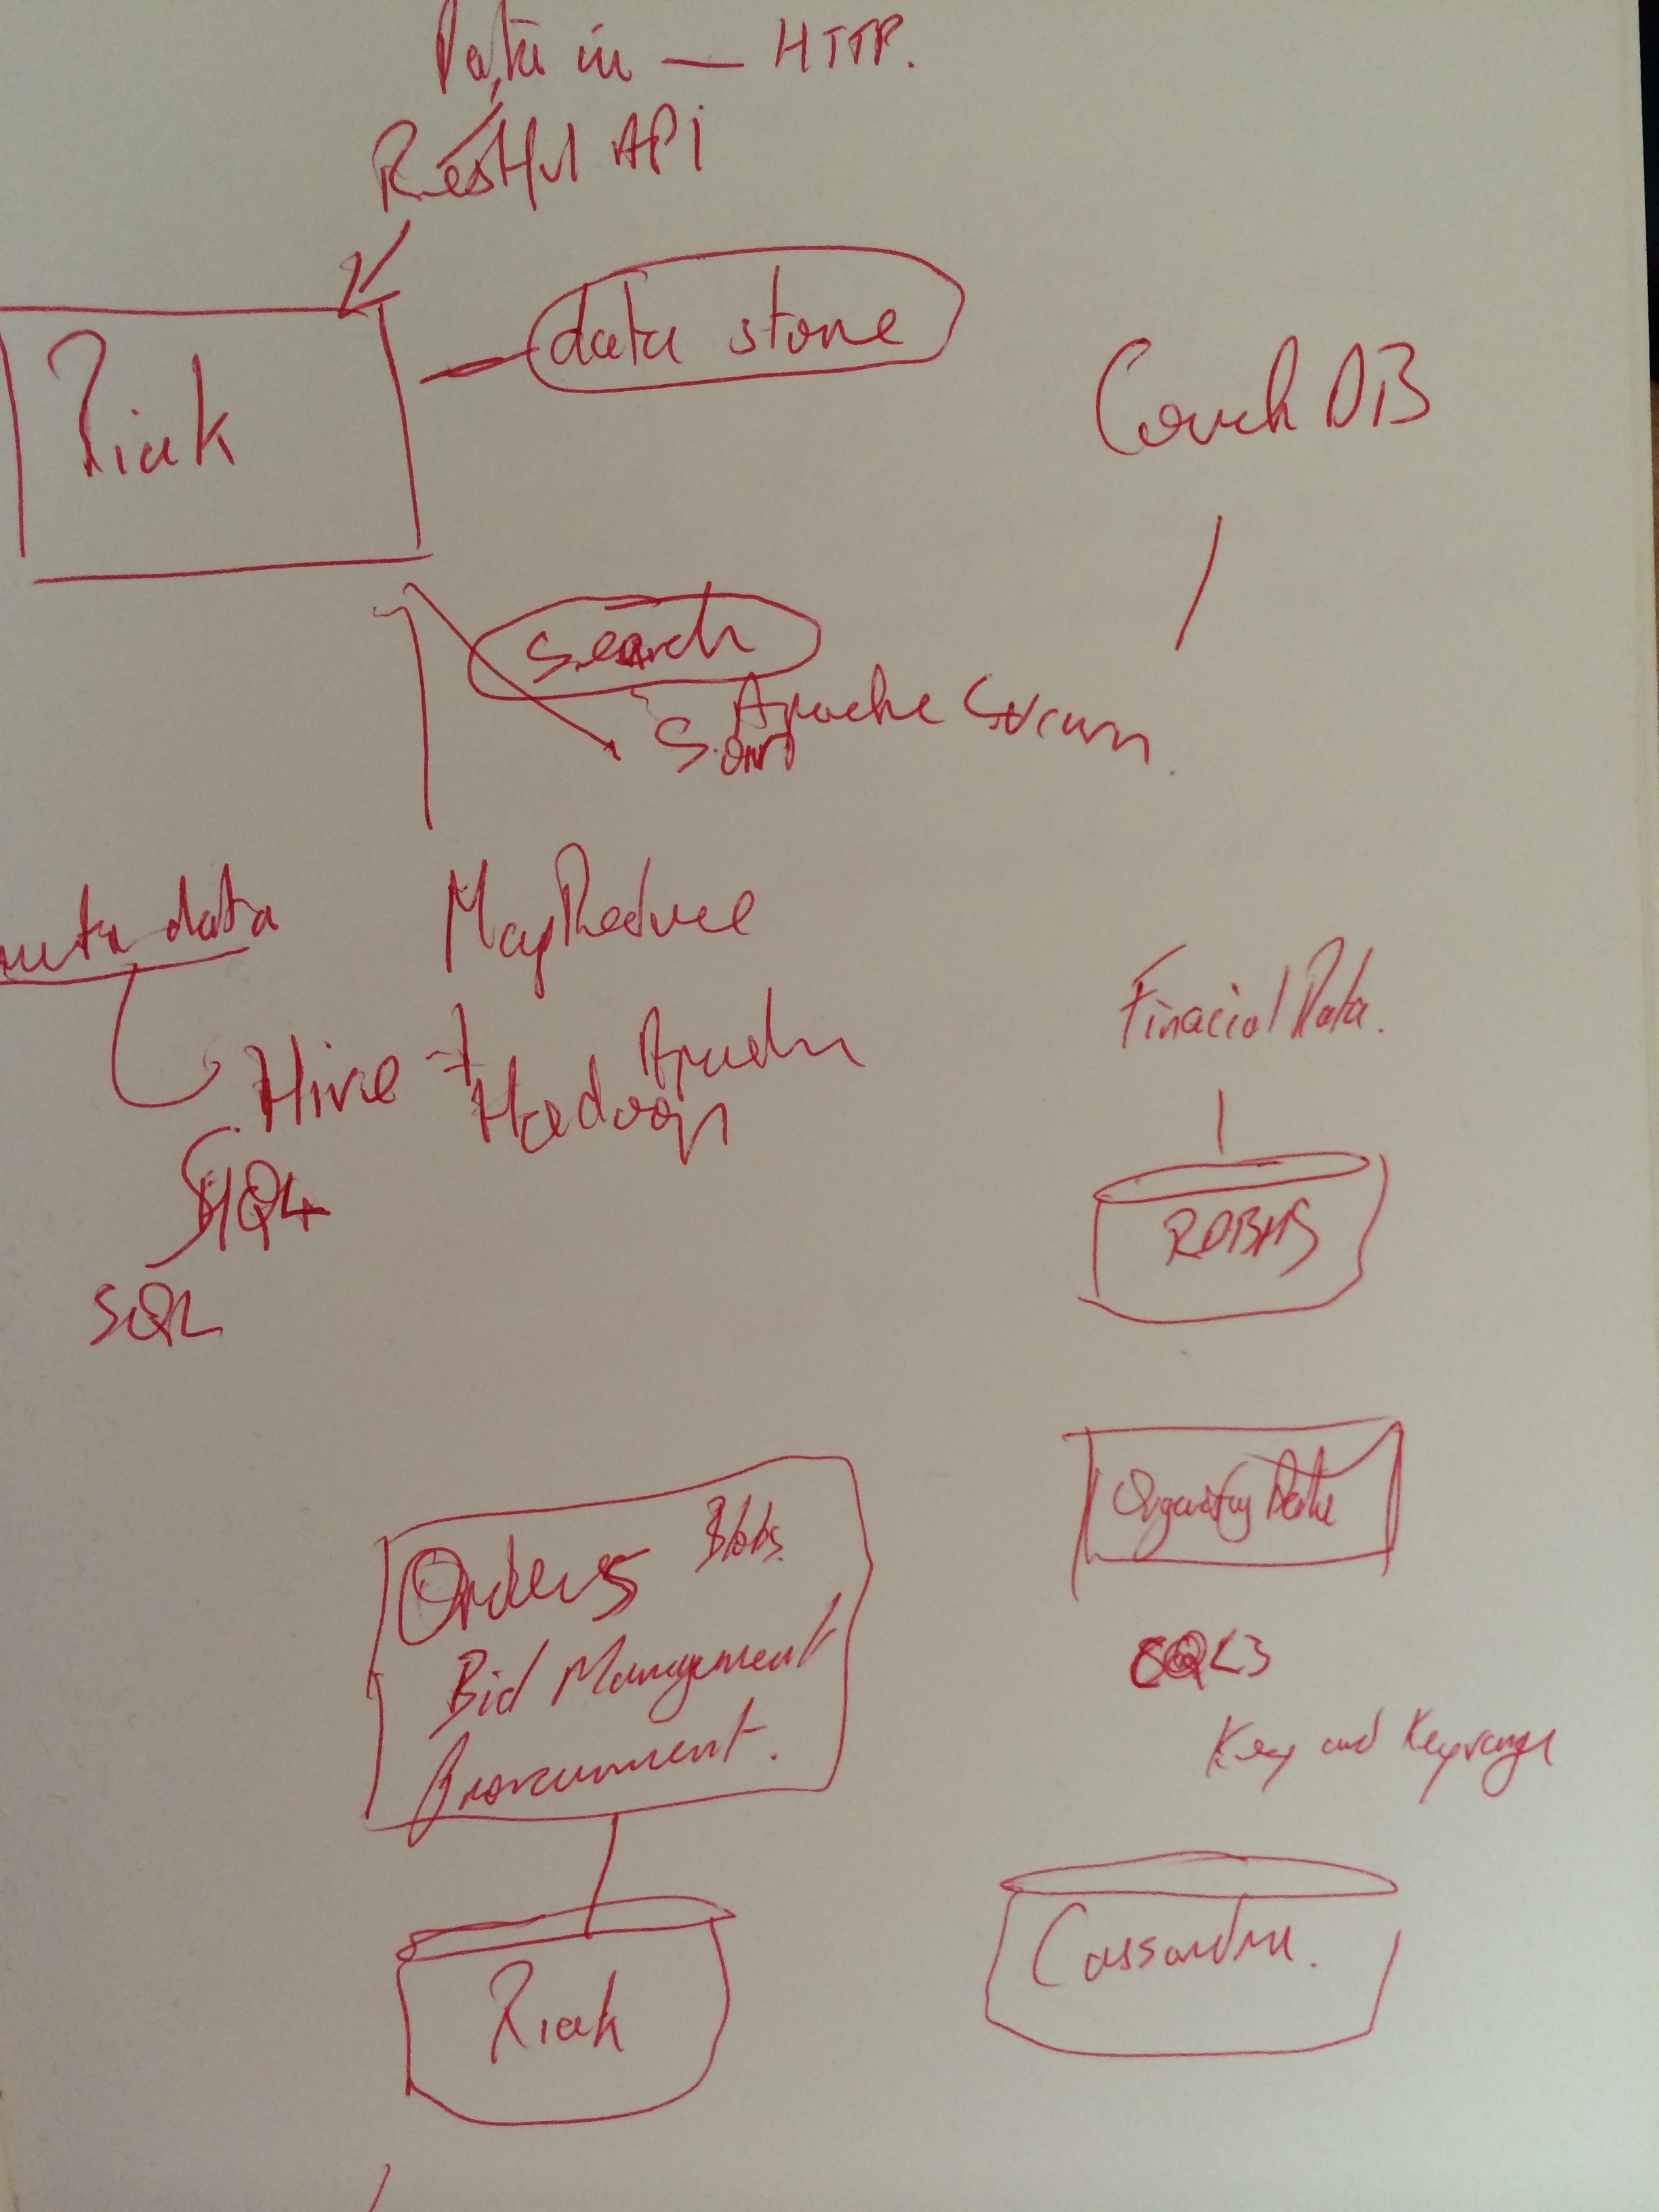 Data in — HTTP.
Restful API
Riak
data store
Couch DB
Search
Apache
meta data
MapReduce
Hive + Apache
Hadoop
SQL
Finacial Data.
RDBMS
Orders Blobs.
Bid Management
Data
CQL3
Key and Keyrange
Riak
Cassandra.